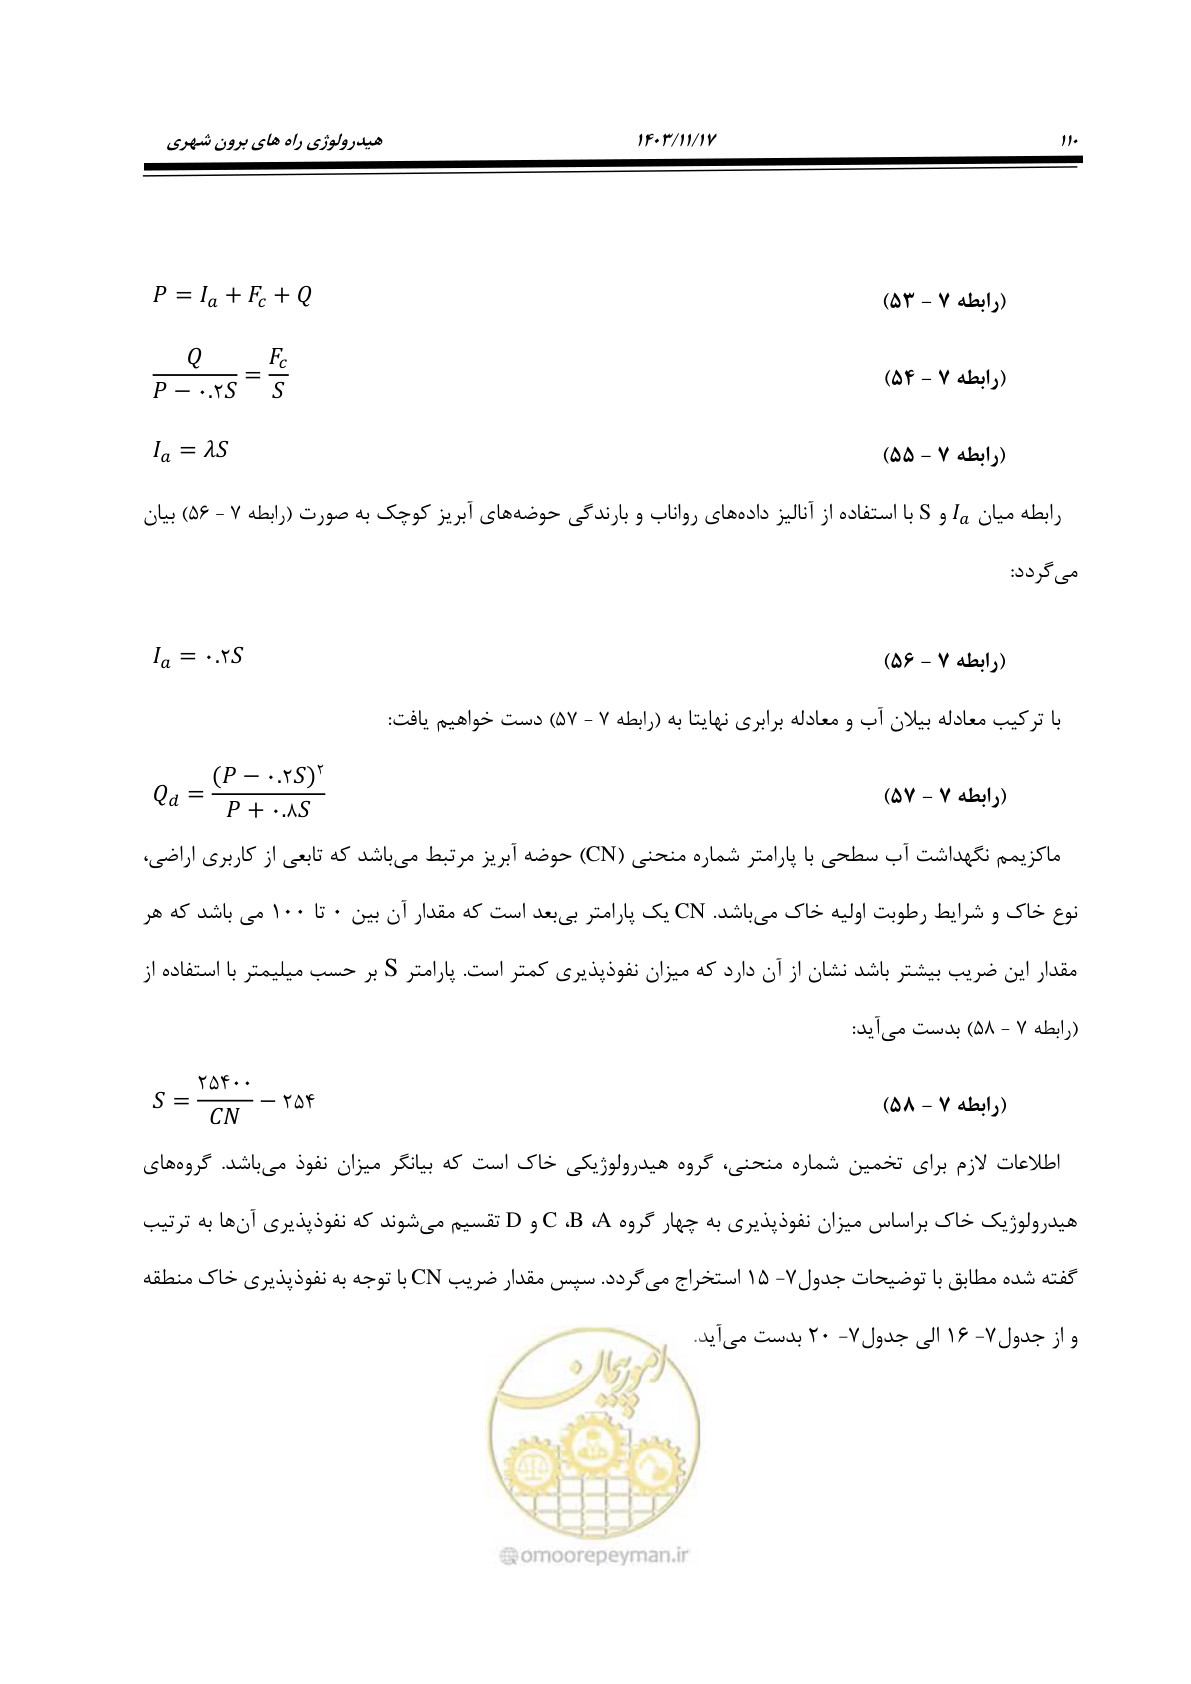 ۱۱۰ ۱۴۰۳/۱۱/۱۷ هیدرولوژی راه های برون شهری
(رابطه ۷ – ۵۳) P = I_a + F_c + Q
(رابطه ۷ – ۵۴) Q / (P − ۰.۲S) = F_c / S
(رابطه ۷ – ۵۵) I_a = λS
رابطه میان I_a و S با استفاده از آنالیز داده‌های رواناب و بارندگی حوضه‌های آبریز کوچک به صورت (رابطه ۷ – ۵۶) بیان
می‌گردد:
(رابطه ۷ – ۵۶) I_a = ۰.۲S
با ترکیب معادله بیلان آب و معادله برابری نهایتا به (رابطه ۷ – ۵۷) دست خواهیم یافت:
(رابطه ۷ – ۵۷) Q_d = (P − ۰.۲S)^۲ / (P + ۰.۸S)
ماکزیمم نگهداشت آب سطحی با پارامتر شماره منحنی (CN) حوضه آبریز مرتبط می‌باشد که تابعی از کاربری اراضی،
نوع خاک و شرایط رطوبت اولیه خاک می‌باشد. CN یک پارامتر بی‌بعد است که مقدار آن بین ۰ تا ۱۰۰ می باشد که هر
مقدار این ضریب بیشتر باشد نشان از آن دارد که میزان نفوذپذیری کمتر است. پارامتر S بر حسب میلیمتر با استفاده از
(رابطه ۷ – ۵۸) بدست می‌آید:
(رابطه ۷ – ۵۸) S = ۲۵۴۰۰ / CN − ۲۵۴
اطلاعات لازم برای تخمین شماره منحنی، گروه هیدرولوژیکی خاک است که بیانگر میزان نفوذ می‌باشد. گروه‌های
هیدرولوژیک خاک براساس میزان نفوذپذیری به چهار گروه A، B، C و D تقسیم می‌شوند که نفوذپذیری آن‌ها به ترتیب
گفته شده مطابق با توضیحات جدول۷- ۱۵ استخراج می‌گردد. سپس مقدار ضریب CN با توجه به نفوذپذیری خاک منطقه
و از جدول۷- ۱۶ الی جدول۷- ۲۰ بدست می‌آید.
امور پیمان
omoorepeyman.ir